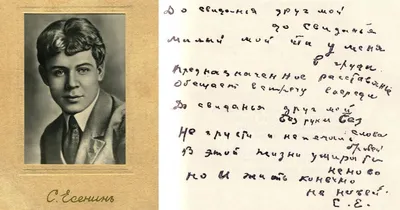 С. Есенинъ
До свиданья друг мой
до свиданья
Милый мой ты у меня
в груди
Предназначенное расставанье
Обещает встречу впереди
До свиданья друг мой
без руки без
слова
Не грусти и не печаль
бровей
В этой жизни умирать
не ново
но и жить конечно
не новей.
С. Е.